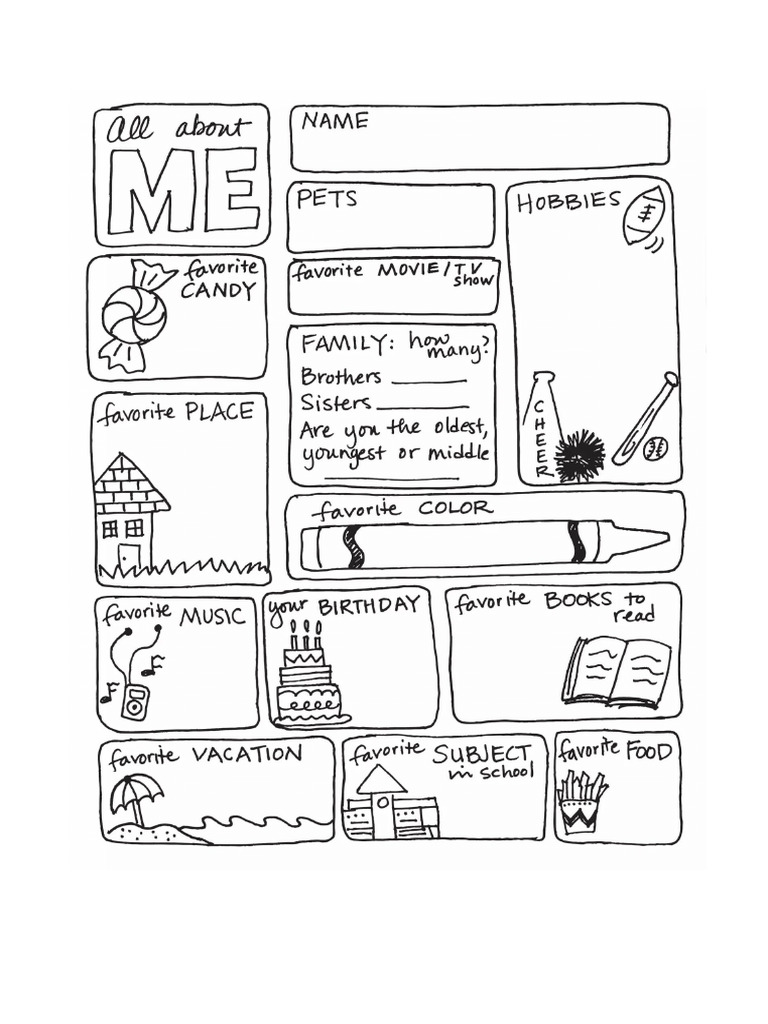 All about
ME
NAME
PETS
HOBBIES
favorite
CANDY
favorite MOVIE/TV
show
FAMILY: how
many?
Brothers ________
Sisters __________
Are you the oldest,
youngest or middle
______________
CHEER
favorite PLACE
favorite COLOR
favorite MUSIC
your BIRTHDAY
favorite BOOKS to
read
favorite VACATION
favorite SUBJECT
in school
favorite FOOD